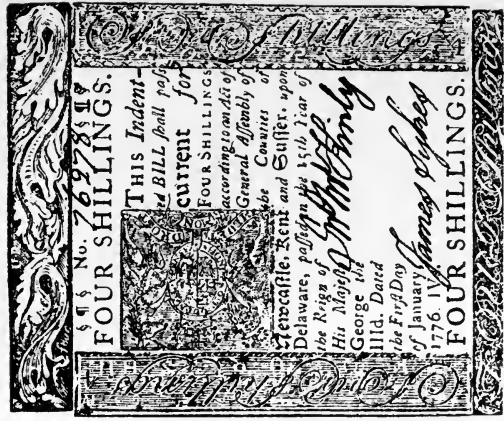 Four Shillings
No. 76978
FOUR SHILLINGS.
THIS Indent-
ed BILL shall pass
current for
FOUR SHILLINGS
according to an Act of
General Assembly of
the Counties of
Newcastle, Kent and Sussex, upon
Delaware, passed in the 15th Year of
the Reign of
His Majesty
George the
IIId. Dated
the First Day
of January
1776.
James Sykes
FOUR SHILLINGS.
Four Shillings